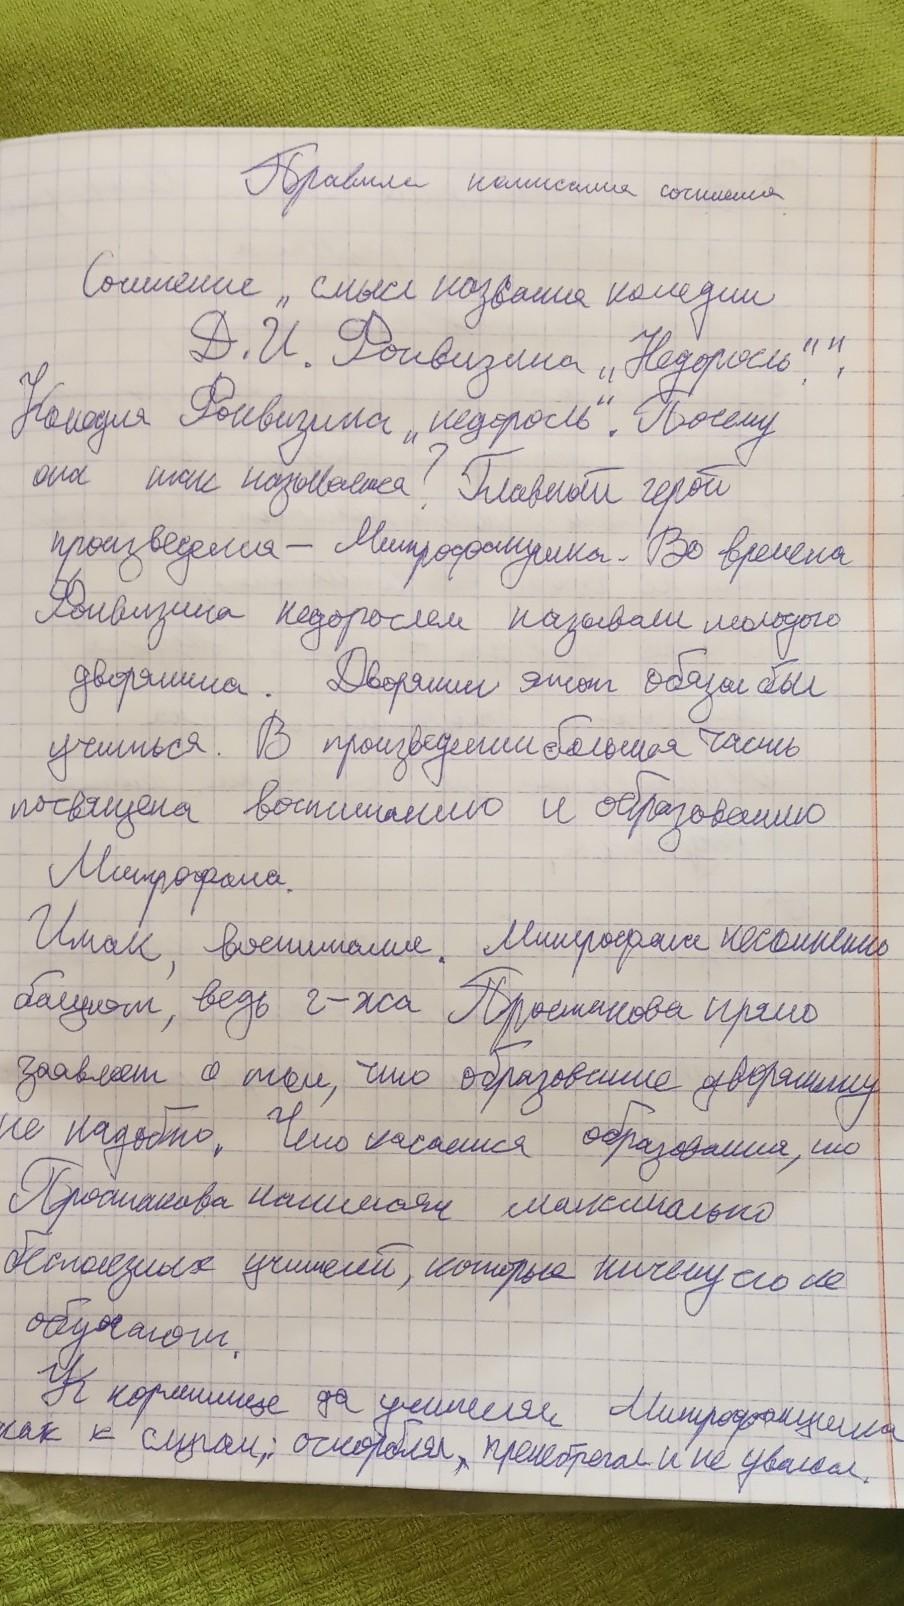 Правила написания сочинения
Сочинение „смысл названия комедии
Д.И. Фонвизина „Недоросль"."
Комедия Фонвизина „недоросль". Почему
она так называется? Главный герой
произведения — Митрофанушка. Во времена
Фонвизина недорослем называли молодого
дворянина. Дворянин этот обязан был
учиться. В произведении большая часть
посвящена воспитанию и образованию
Митрофана.
Итак, воспитание. Митрофан несомненно
ведь г-жа Простакова прямо
заявляет о том, что образование дворянину
не надобно. Что касается образования, то
Простакова нанимает максимально
бесполезных учителей, которые ничему его не
обучают.
К кормилице да учителям Митрофанушка
как к слугам: оскорблял, пренебрегал и не уважал.